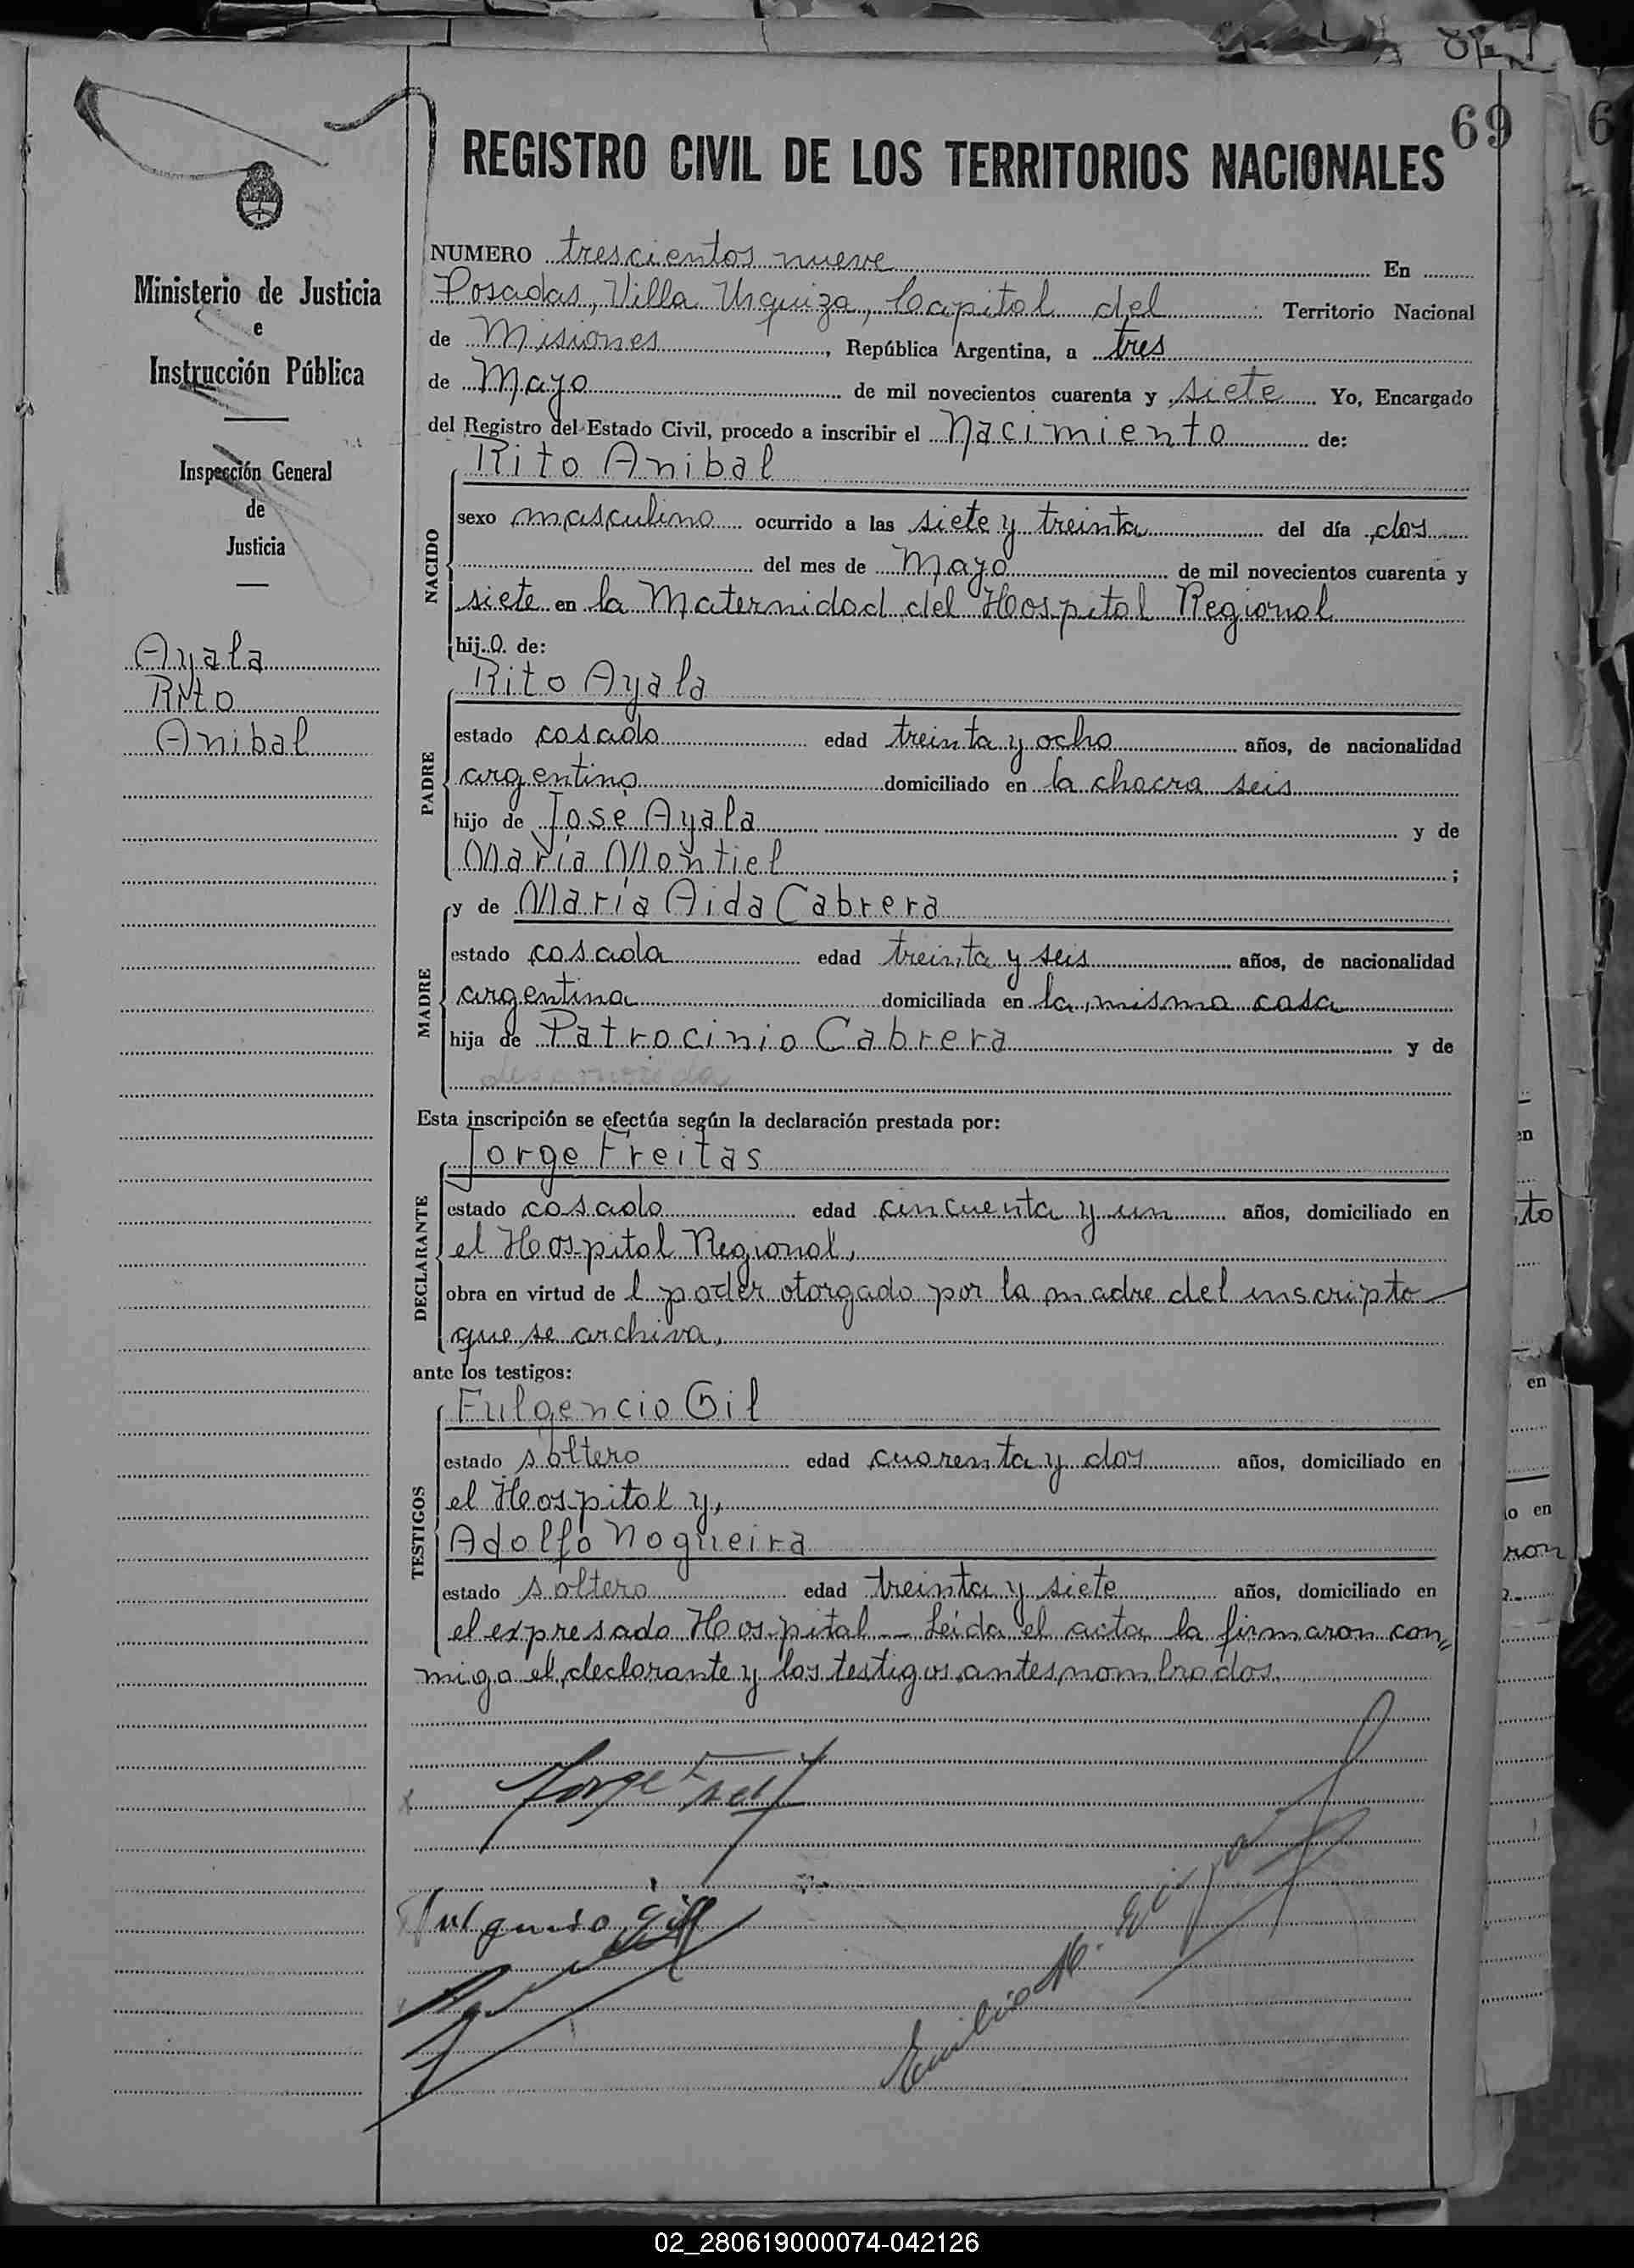 69
REGISTRO CIVIL DE LOS TERRITORIOS NACIONALES
Ministerio de Justicia
e
Instrucción Pública
Inspección General
de
Justicia
Ayala
Rito
Anibal
NUMERO trescientos nueve En
Posadas, Villa Urquiza, Capital del Territorio Nacional
de Misiones, República Argentina, a tres
de Mayo de mil novecientos cuarenta y siete Yo, Encargado
del Registro del Estado Civil, procedo a inscribir el Nacimiento de:
NACIDO
Rito Anibal
sexo masculino ocurrido a las siete y treinta del día dos
del mes de Mayo de mil novecientos cuarenta y
siete en la Maternidad del Hospital Regional
hij.o. de:
PADRE
Rito Ayala
estado casado edad treinta y ocho años, de nacionalidad
argentino domiciliado en la chacra seis
hijo de José Ayala y de
María Montiel ;
MADRE
y de María Aida Cabrera
estado casada edad treinta y seis años, de nacionalidad
argentina domiciliada en la misma casa
hija de Patrocinio Cabrera y de
desconocida
Esta inscripción se efectúa según la declaración prestada por:
DECLARANTE
Jorge Freitas
estado casado edad cincuenta y un años, domiciliado en
el Hospital Regional,
obra en virtud de l poder otorgado por la madre del inscripto
que se archiva,
ante los testigos:
TESTIGOS
Fulgencio Gil
estado soltero edad cuarenta y dos años, domiciliado en
el Hospital y,
Adolfo Nogueira
estado soltero edad treinta y siete años, domiciliado en
el expresado Hospital -- Leída el acta la firmaron con„
migo el declarante y los testigos antes nombrados
Jorge
Emilio
02_280619000074-042126